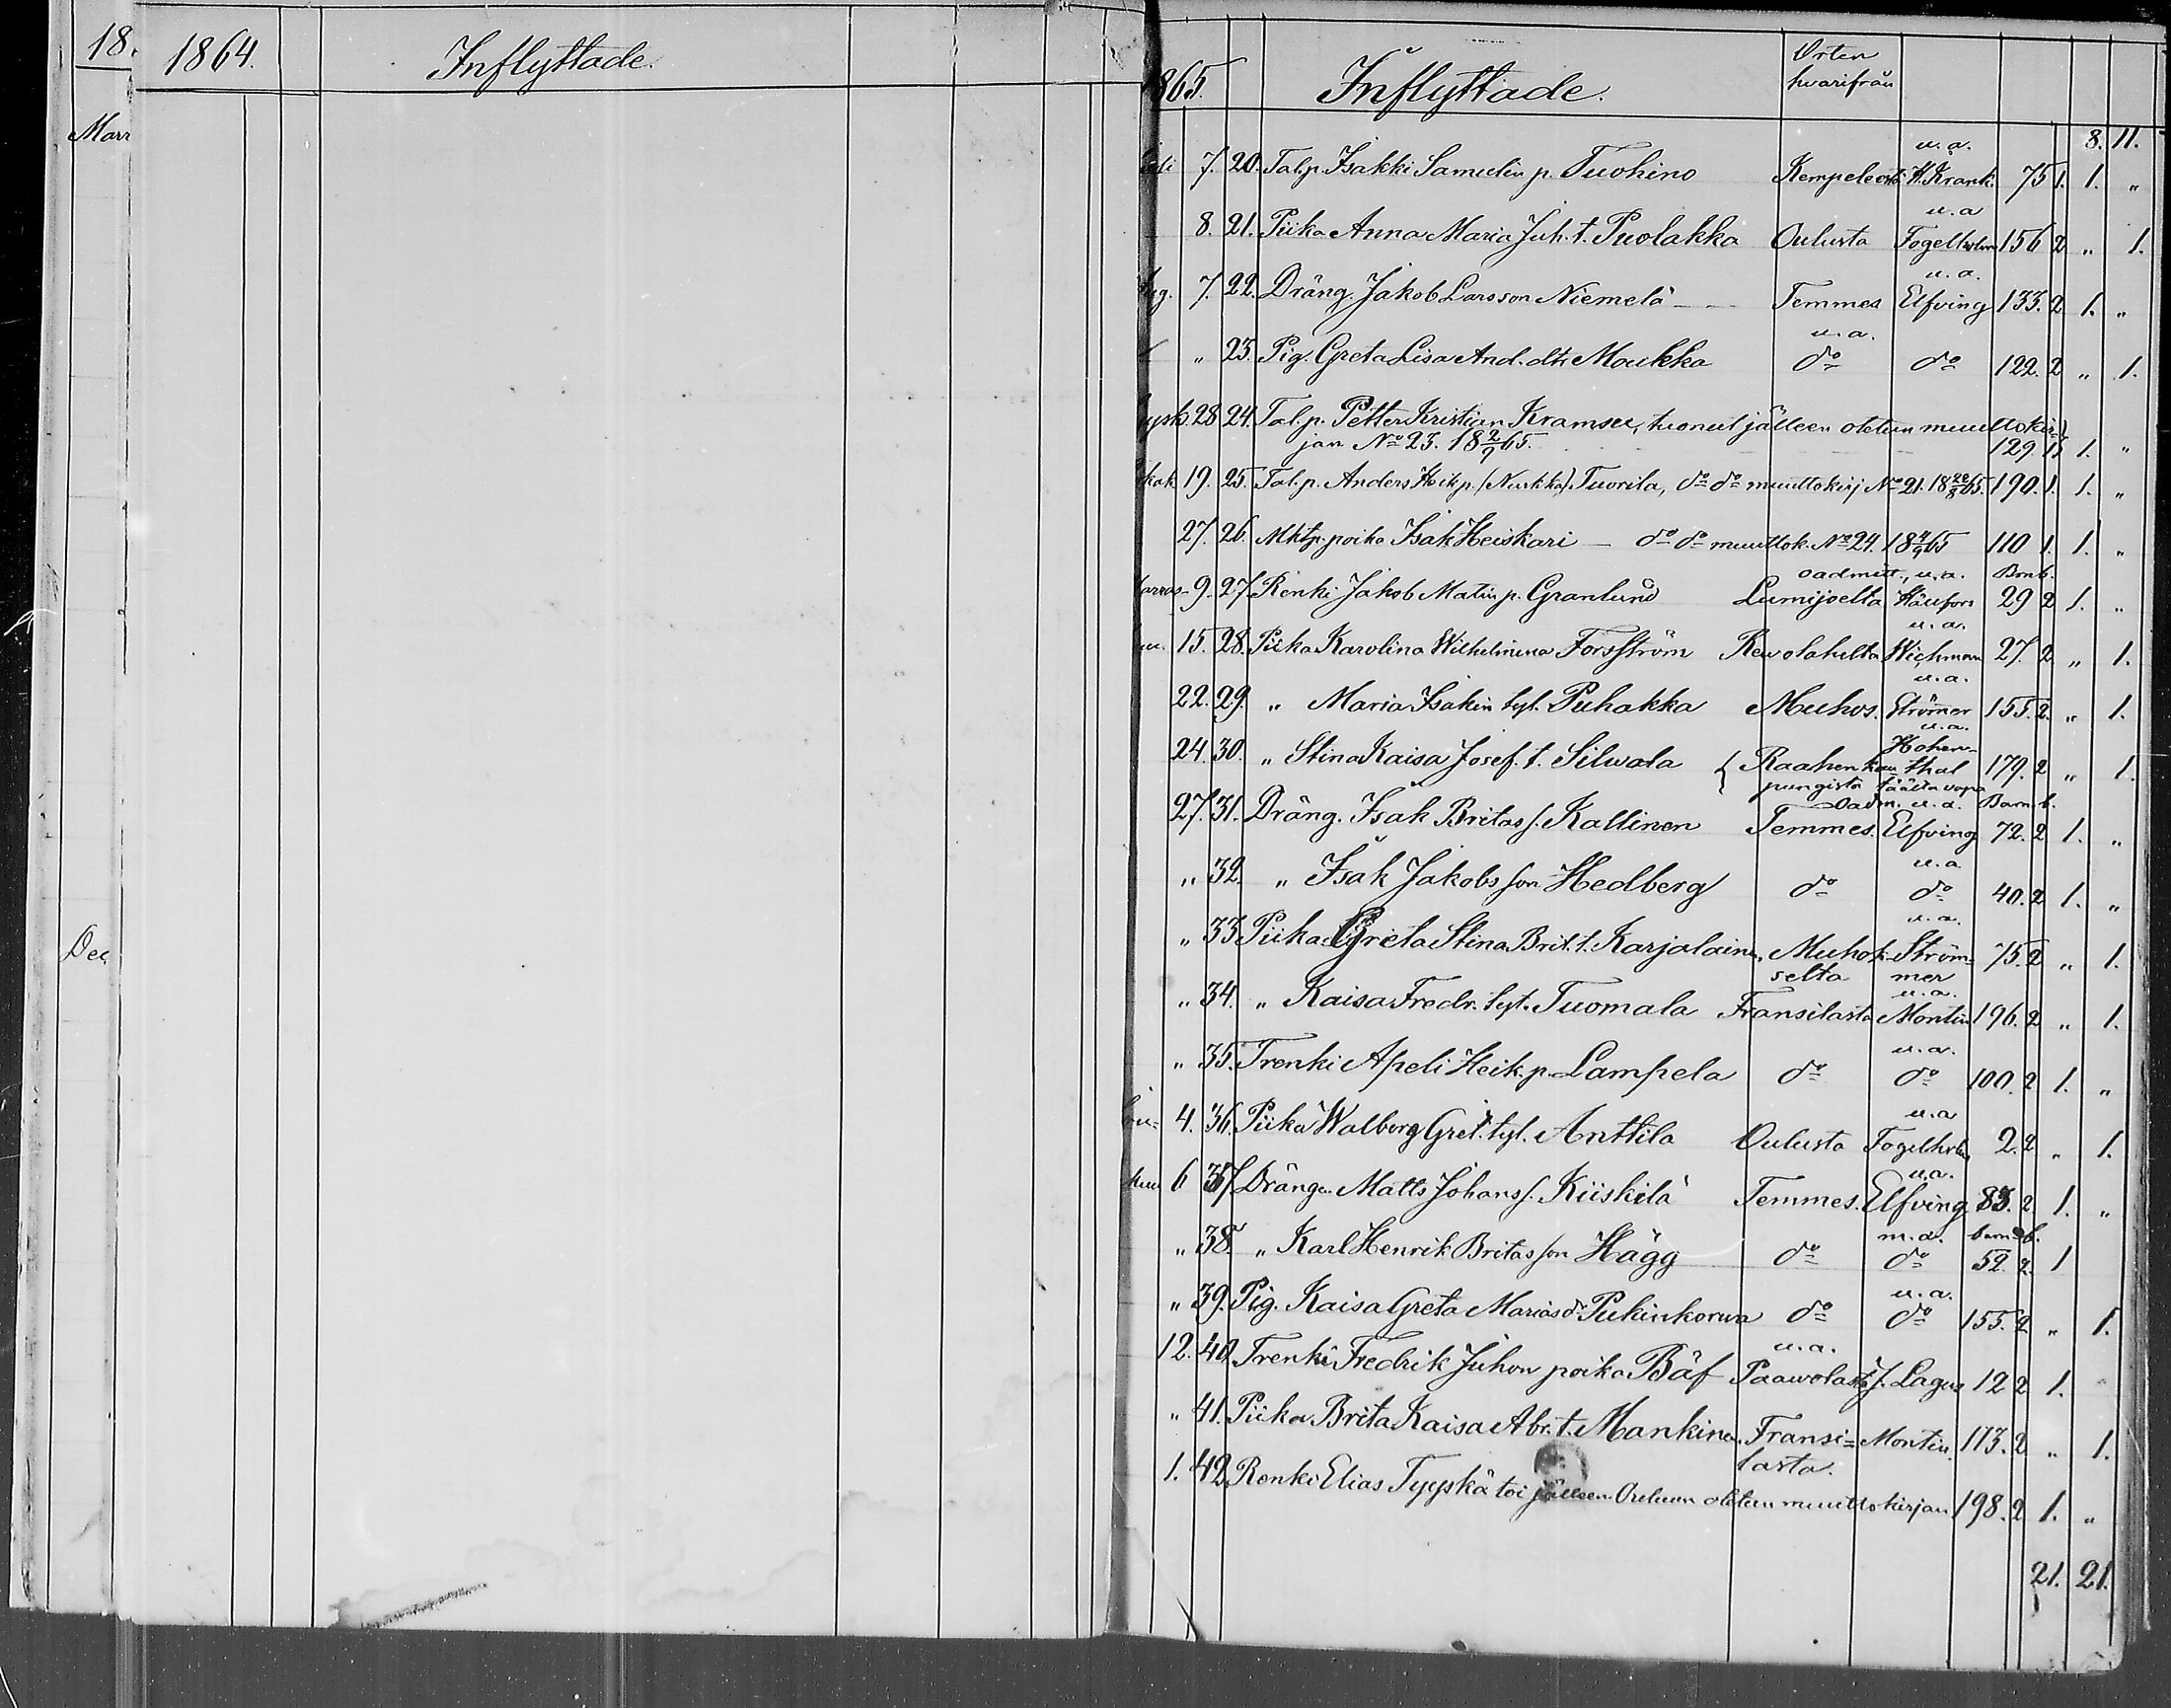 18.
Mars
Dec
1864. Inflyttade.
1865. Inflyttade. Orten hvarifrån
8. 11.
7. 20. Talp. Isakki Samulin p. Tuohino Kempeleestä u.a. H. Krank. 75 1. 1. "
8. 21. Piika Anna Maria Juh. t. Puolakka Oulusta u.a Fogelholm 156 2 " 1.
Aug. 7. 22. Dräng. Jakob Larsson Niemelä Temmes u.a. Elfving 133. 2 1. "
" 23. Pig. Greta Lisa And. dtr Moukka u.a. do do 122. 2 " 1.
Syysk. 28 24. Tal. p. Petter Kristian Kramsu, tuonut jälleen otetun muuttokir=
jan No 23. 18 2/9 65. 129. 1 1. "
Lokak 19. 25. Tal. p. Anders Heik p. (Nurkka) Tuorila, do do muuttokirj No 21. 18 22/8 65. 190. 1. 1. "
27. 26. Mktp. poika Isak Heiskari — do do muuttok. No 24. 18 4/9 65 110 1. 1. "
Marras- 9. 27. Renki Jakob Matin p. Granlund Lumijoelta oadmitt., u.a. Häufors Barnb. 29 2 1. "
15. 28. Piika Karolina Wilhelmina Forsström Rewolahelta u.a. Wichman 27. 2. " 1.
22. 29. " Maria Isakin tyt. Puhakka Muhos. u.a. Strömer 155. 2. " 1.
24. 30. " Stina Kaisa Josef. t. Silwala { Raahen kau u.a. Hohenthal 179. 2 " 1.
pungista täältä
27. 31. Dräng. Isak Britas s. Kallinen Temmes. Oadm. u.a. Elfving Barn. b. 72. 2 1. "
" 32. " Isak Jakobsson Hedberg do u.a do 40. 2 1. "
" 33 Piika Greta Stina Brit. t. Karjalainen, Muhok- u.a. Ström= 75. 2 " 1.
selta mer
" 34. " Kaisa Fredr. tyt. Tuomala Fransilasta u.a. Montin 196. 2 " 1.
" 35. Trenki Apeli Heik. p. Lampela do u.a. do 100. 2 1. "
4. 36. Piika Walborg Gret. tyt. Anttila Oulusta u.a Fogelholm 2. 2 " 1.
kuu 6 37 Drängen Matts Johans s. Kiiskilä Temmes. u.a. Elfving 83. 2. 1. "
" 38. " Karl Henrik Britasson Hägg do m.a. do barnb. 52. 2. 1
" 39. Pig. Kaisa Greta Marias dr Pukinkorwa do u.a. do 155. 2 " 1.
12. 40. Trenki Fredrik Juhon poika Bäf u.a. Paawolasta J. Lagus 12 2 1. "
" 41. Piika Brita Kaisa Abr. t. Mankinen. Fransi= Montin. 113. 2 " 1.
lasta.
1. 42. Renki Elias Tyyskä toi jälleen Ouluun otetun muuttokirjan 198. 2 1. "
21. 21.